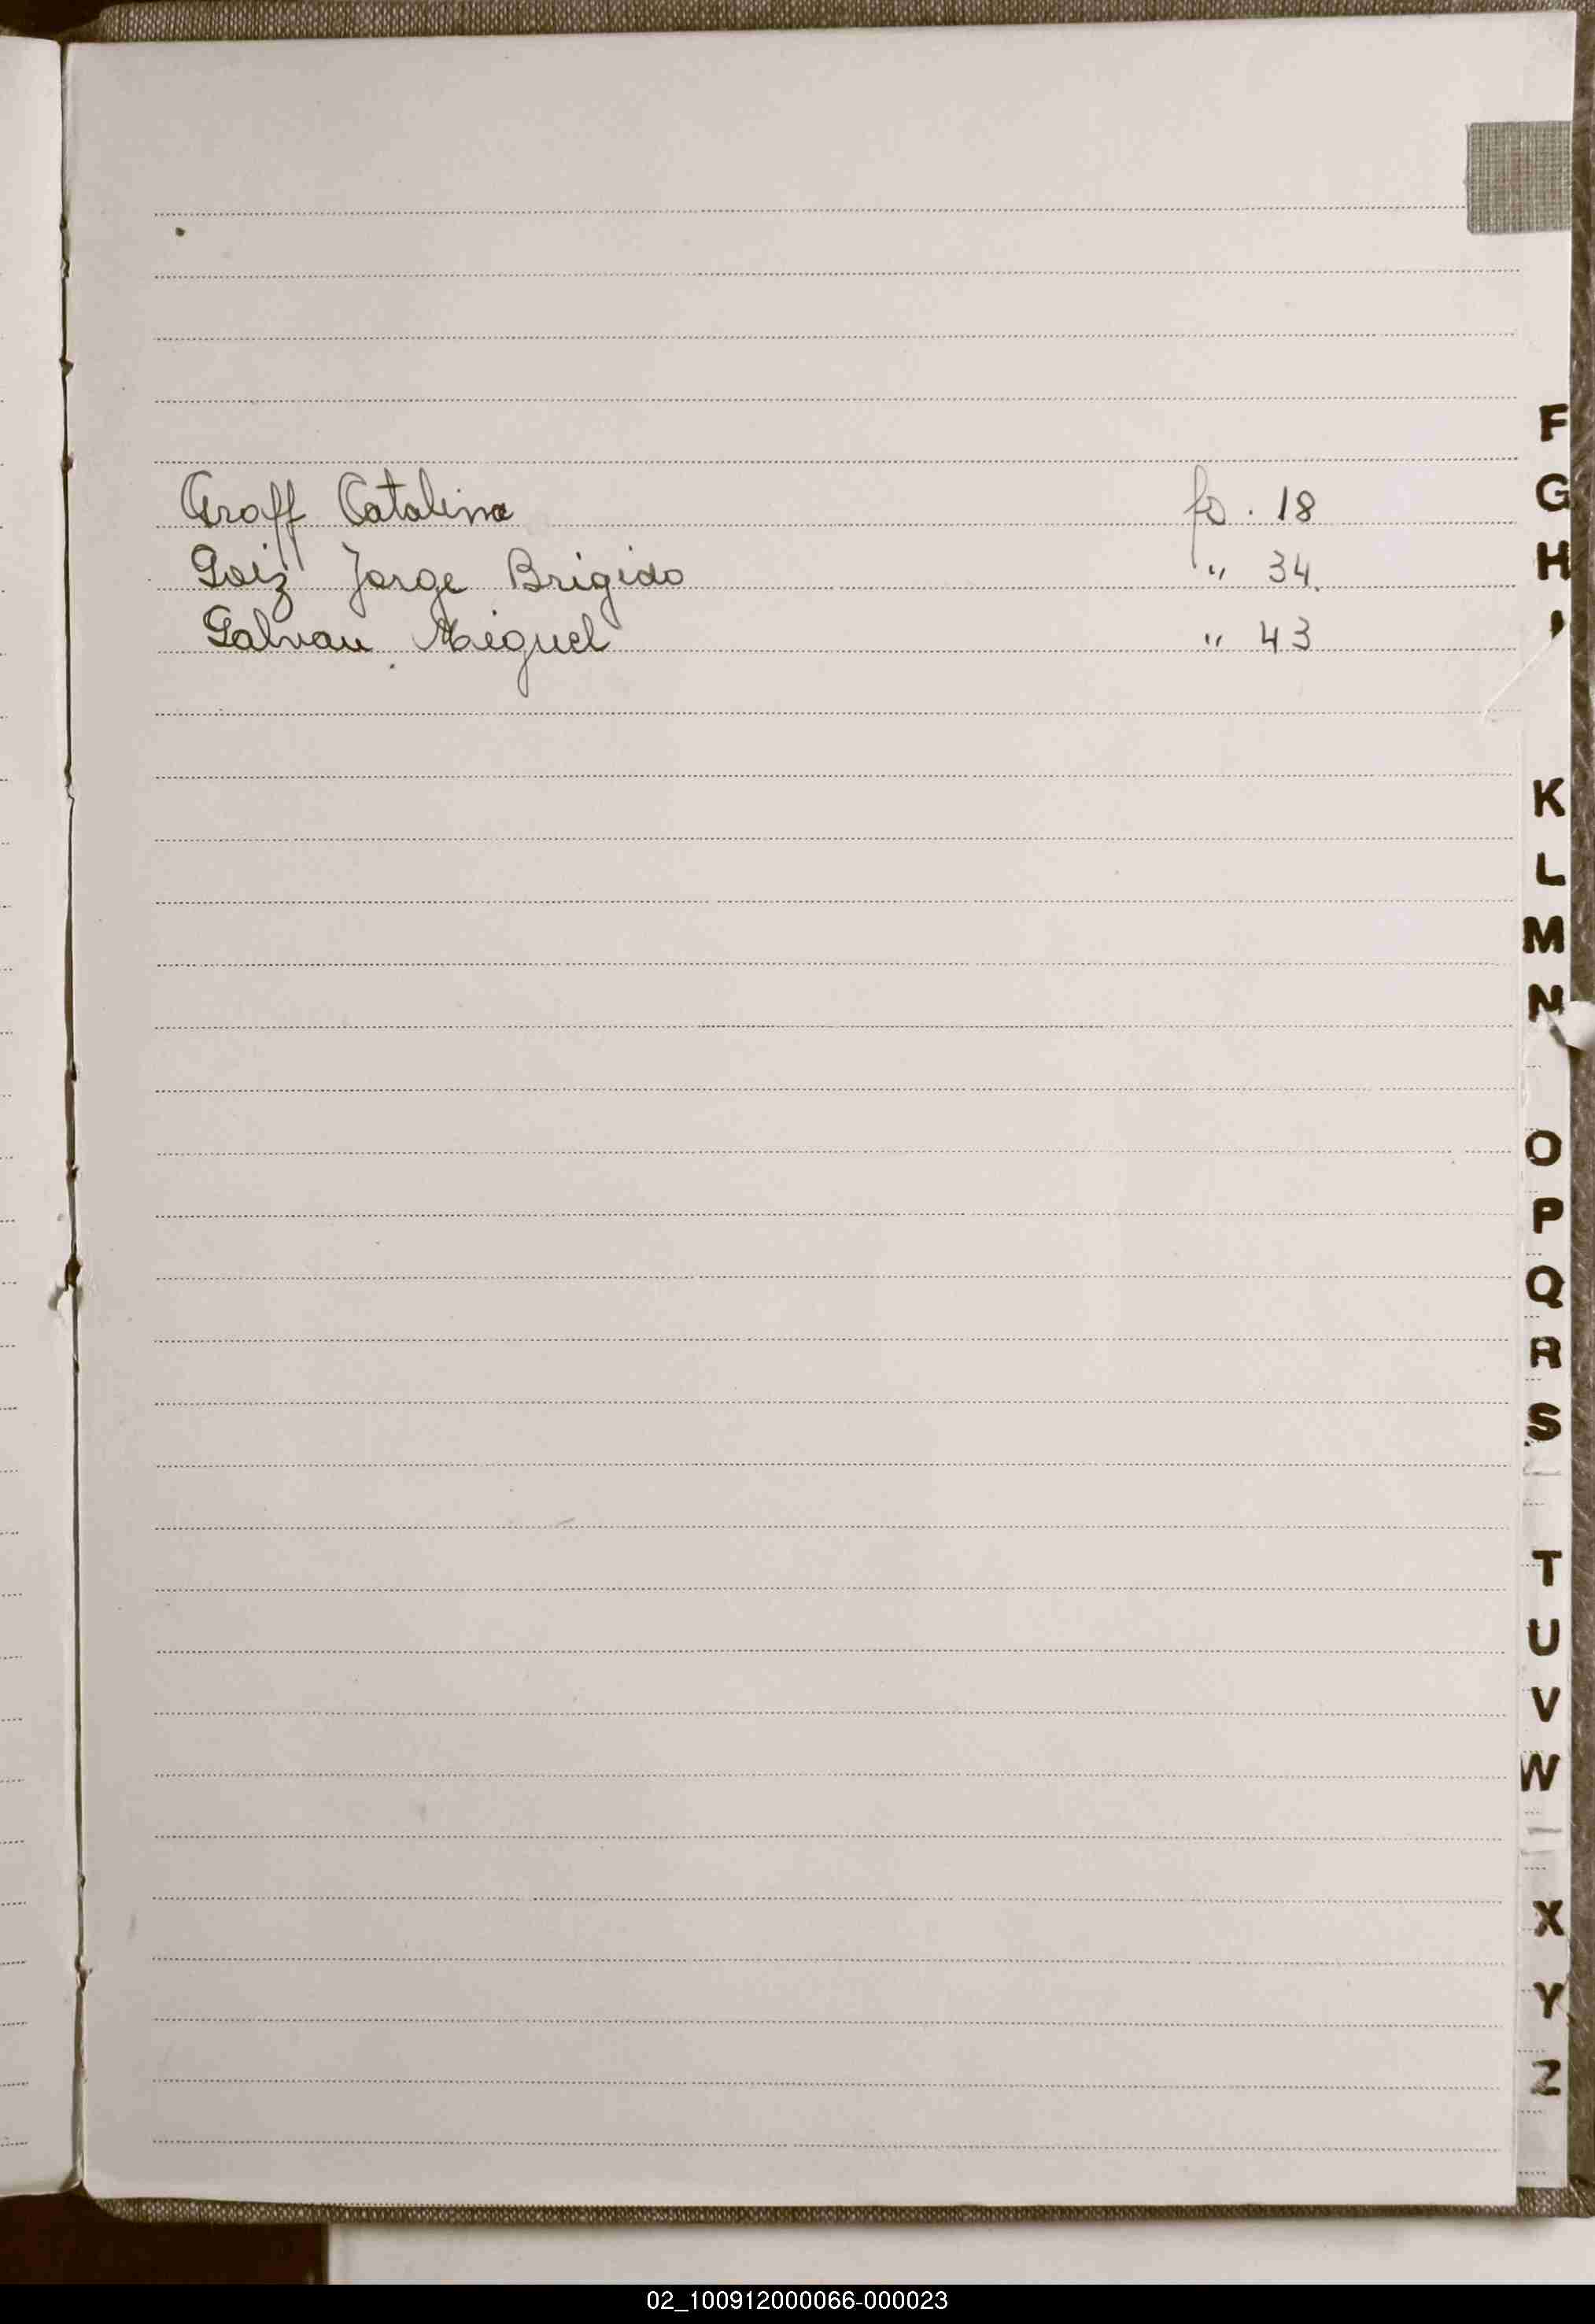 Graff Catalina fo. 18
Goiz Jorge Brigido " 34.
Galvan Miguel " 43
F
G
H
K
L
M
N
O
P
Q
R
S
T
U
V
W
X
Y
Z
02_100912000066-000023